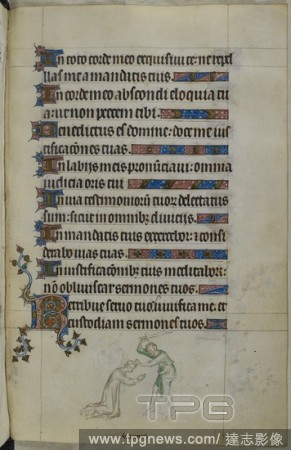 In toto corde meo exquisivi te: ne repel
las me a mandatis tuis.
In corde meo abscondi eloquia tu
a: ut non peccem tibi.
Benedictus es domine: doce me ius
tificationes tuas.
In labijs meis pronunciavi: omnia
judicia oris tui
In via testimoniorum tuorum delectatus
sum: sicut in omnibus divicijs.
In mandatis tuis exercebor: et consi
derabo vias tuas.
In iustificationibus tuis meditabor:
non obliviscar sermones tuos.
Retribue servo tuo vivifica me: et
custodiam sermones tuos.
TPG
www.tpgnews.com / 達志影像